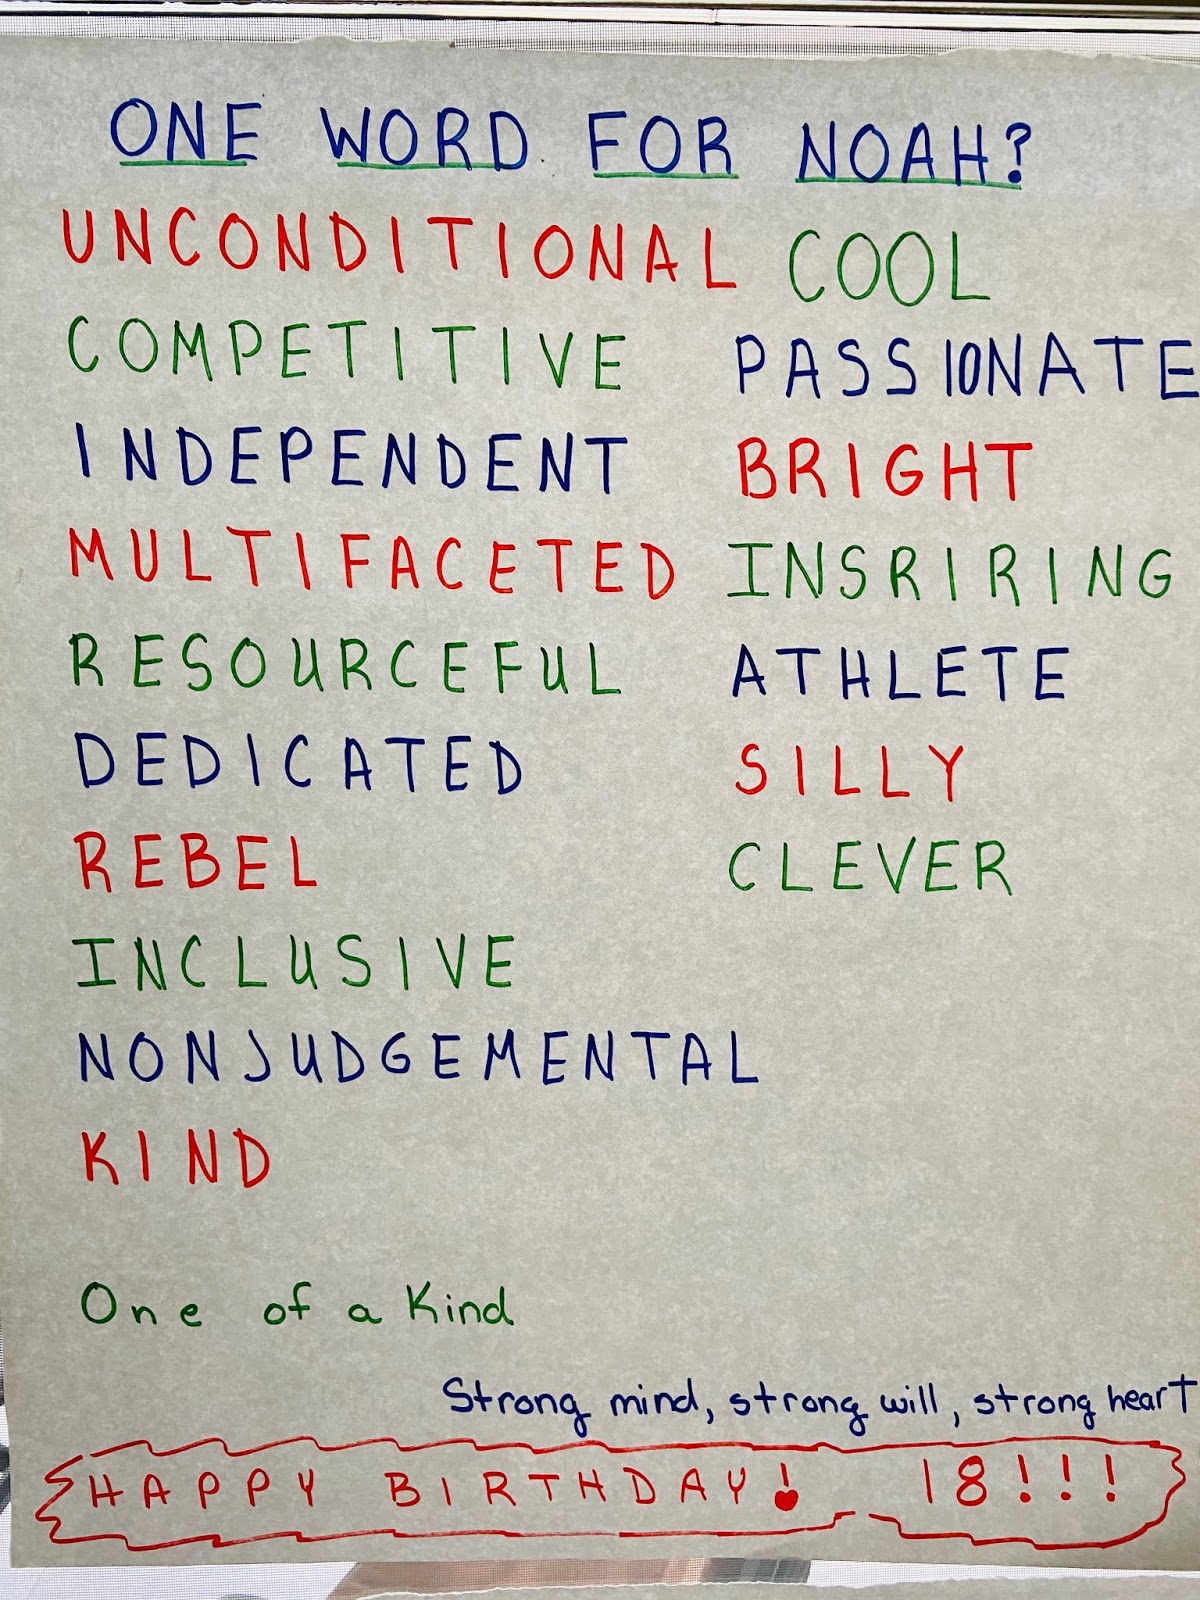 ONE WORD FOR NOAH?
UNCONDITIONAL
COMPETITIVE
INDEPENDENT
MULTIFACETED
RESOURCEFUL
DEDICATED
REBEL
INCLUSIVE
NONJUDGEMENTAL
KIND
COOL
PASSIONATE
BRIGHT
INSRIRING
ATHLETE
SILLY
CLEVER
One of a Kind
Strong mind, strong will, strong heart
HAPPY BIRTHDAY! 18!!!